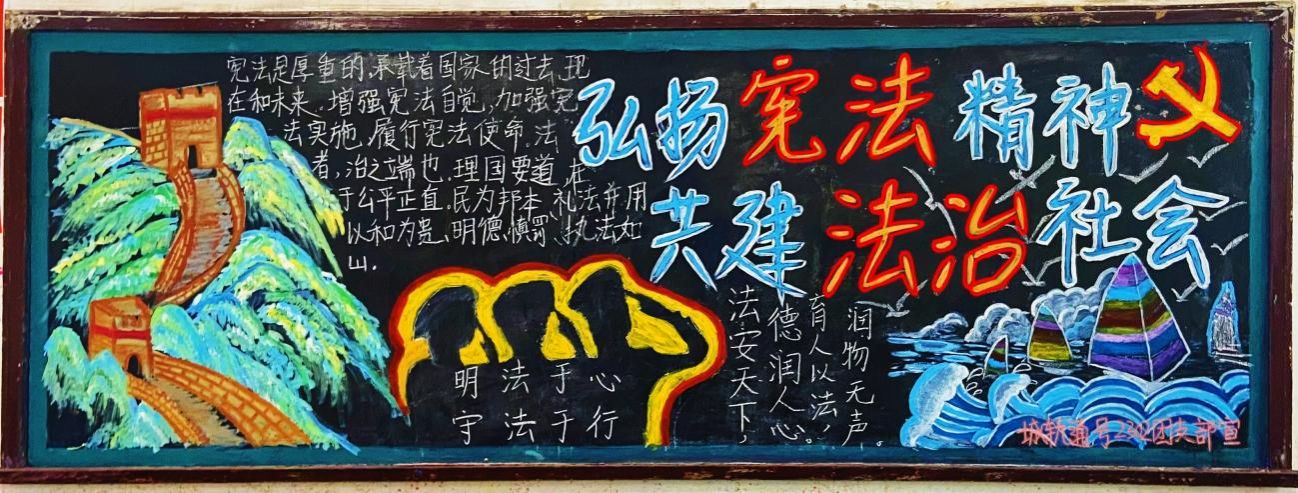 宪法是厚重的,承载着国家的过去、现
在和未来,增强宪法自觉,加强宪
法实施,履行宪法使命。法
者,治之端也,理国要道,在
于公平正直,民为邦本,礼法并用
以和为贵,明德慎罚,执法如
山.
弘扬宪法精神
共建法治社会
明法于心
守法于行
法安天下,
德润人心
育人以法,
润物无声。
城轨通号2302团支部宣